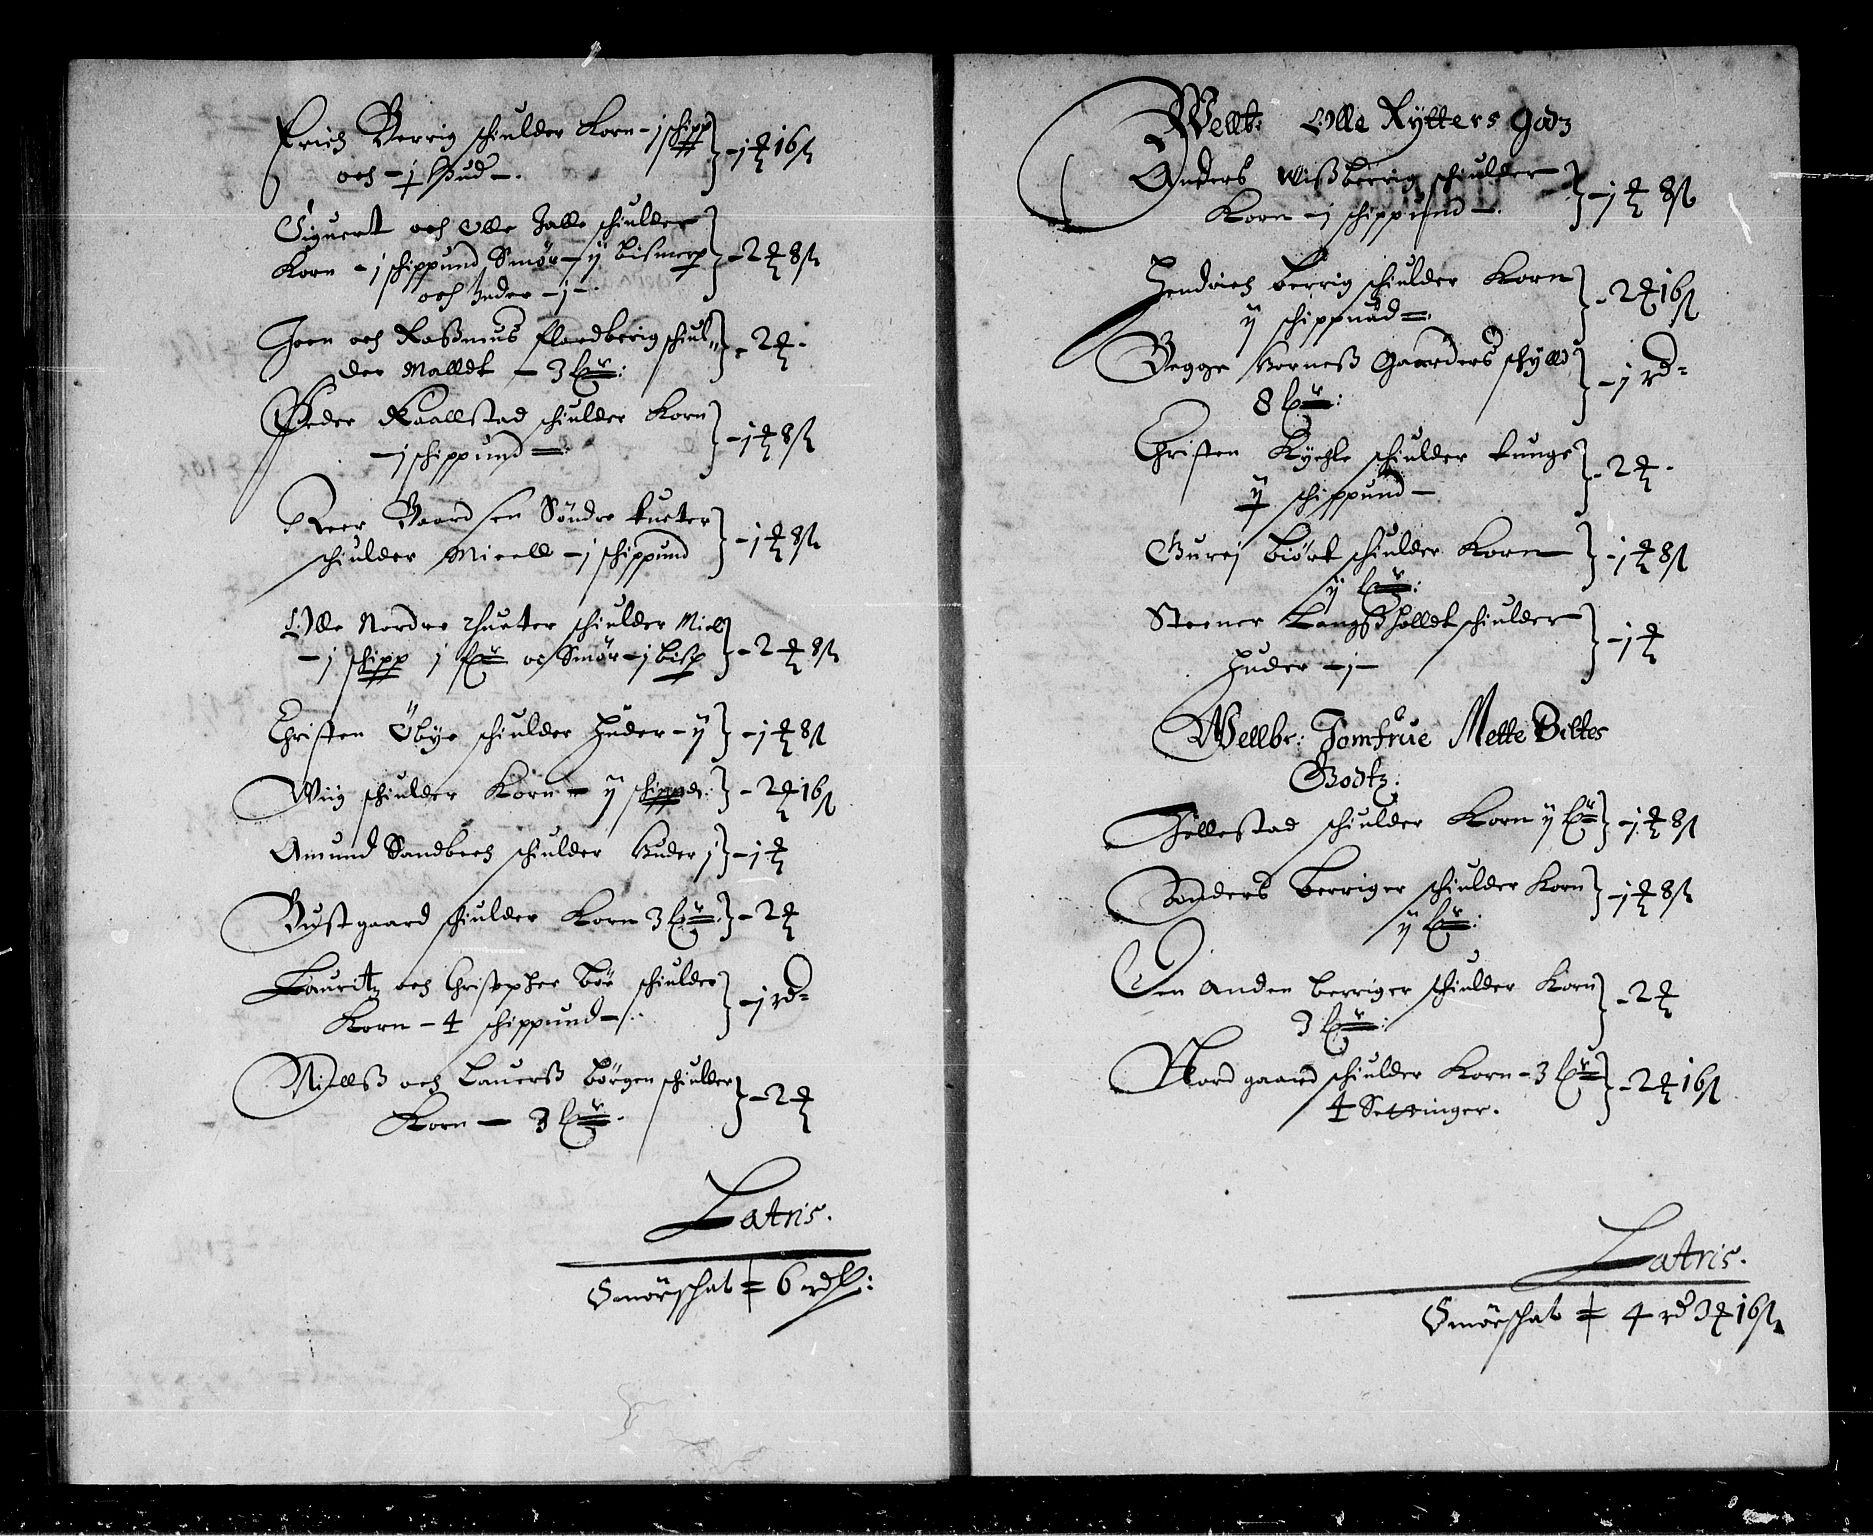 Erich Berrig schiulder Korn - j schipp } - j ort 16 ß
och - j Hud -.
Siguert och Olle Jalle schiulder
Korn - j schippund Smör - ij bismerp } - 2 ort 8 ß
och huder - j -
Joen och Raßmus flardberig schiul-
der Malldt - 3 { } - 2 ort.
Peder Raallstad schiulder Korn
- j schippund = } - j ort 8 ß
Reer Baardsen Söndre tueter
schiulder Mieell - j schippund } - j ort 8 ß
Olle Nordre thueter schiulder Miell
- j schipp j oc Smör - j bisp } - 2 ort 8 ß
Christen Öbye schiulder Huder - ij } - j ort 8 ß
Wiig schiulder Korn - ij schippd: } - 2 ort 16 ß
Amund Sandbech schiulder huder j } - j ort
Bustgaard schiulder Korn 3 } - 2 ort
Lauritz och Christopher Bör schiulder
Korn - 4 schippund - } - j rd
Niellß och Lauerß Börgen schiulder
Korn - 3 } - 2 ort
Latris.
Smörschat = 6 rdl:
Wellb: Olle Rytters godz
Anders Wißberrig schiulder
Korn - j schippund - } - j ort 8 ß
Hendrich berrig schiulder Korn
ij schippund = } - 2 ort 16 ß
Begge Vorneß Gaarders schyld
8 } - j rd
Christen Kyhle schiulder tunge
ij schippund - } - 2 ort.
Gurej biört schiulder Korn
ij } - j ort 8 ß
Steener Langßholldt schiulder
huder - j - } - j ort
Wellbr: Jomfrue Mette Biltes
Godtz:
Hollestad schiulder Korn ij } - j ort 8 ß
Sonders berriger schiulder Korn
ij } - j ort 8 ß
Een anden berriger schiulder Korn
3 } - 2 ort
Nordgaard schiulder Korn - 3
4 Settinger. } - 2 ort 16 ß
Latris.
Smörschat = 4 rd 3 ort 16 ß